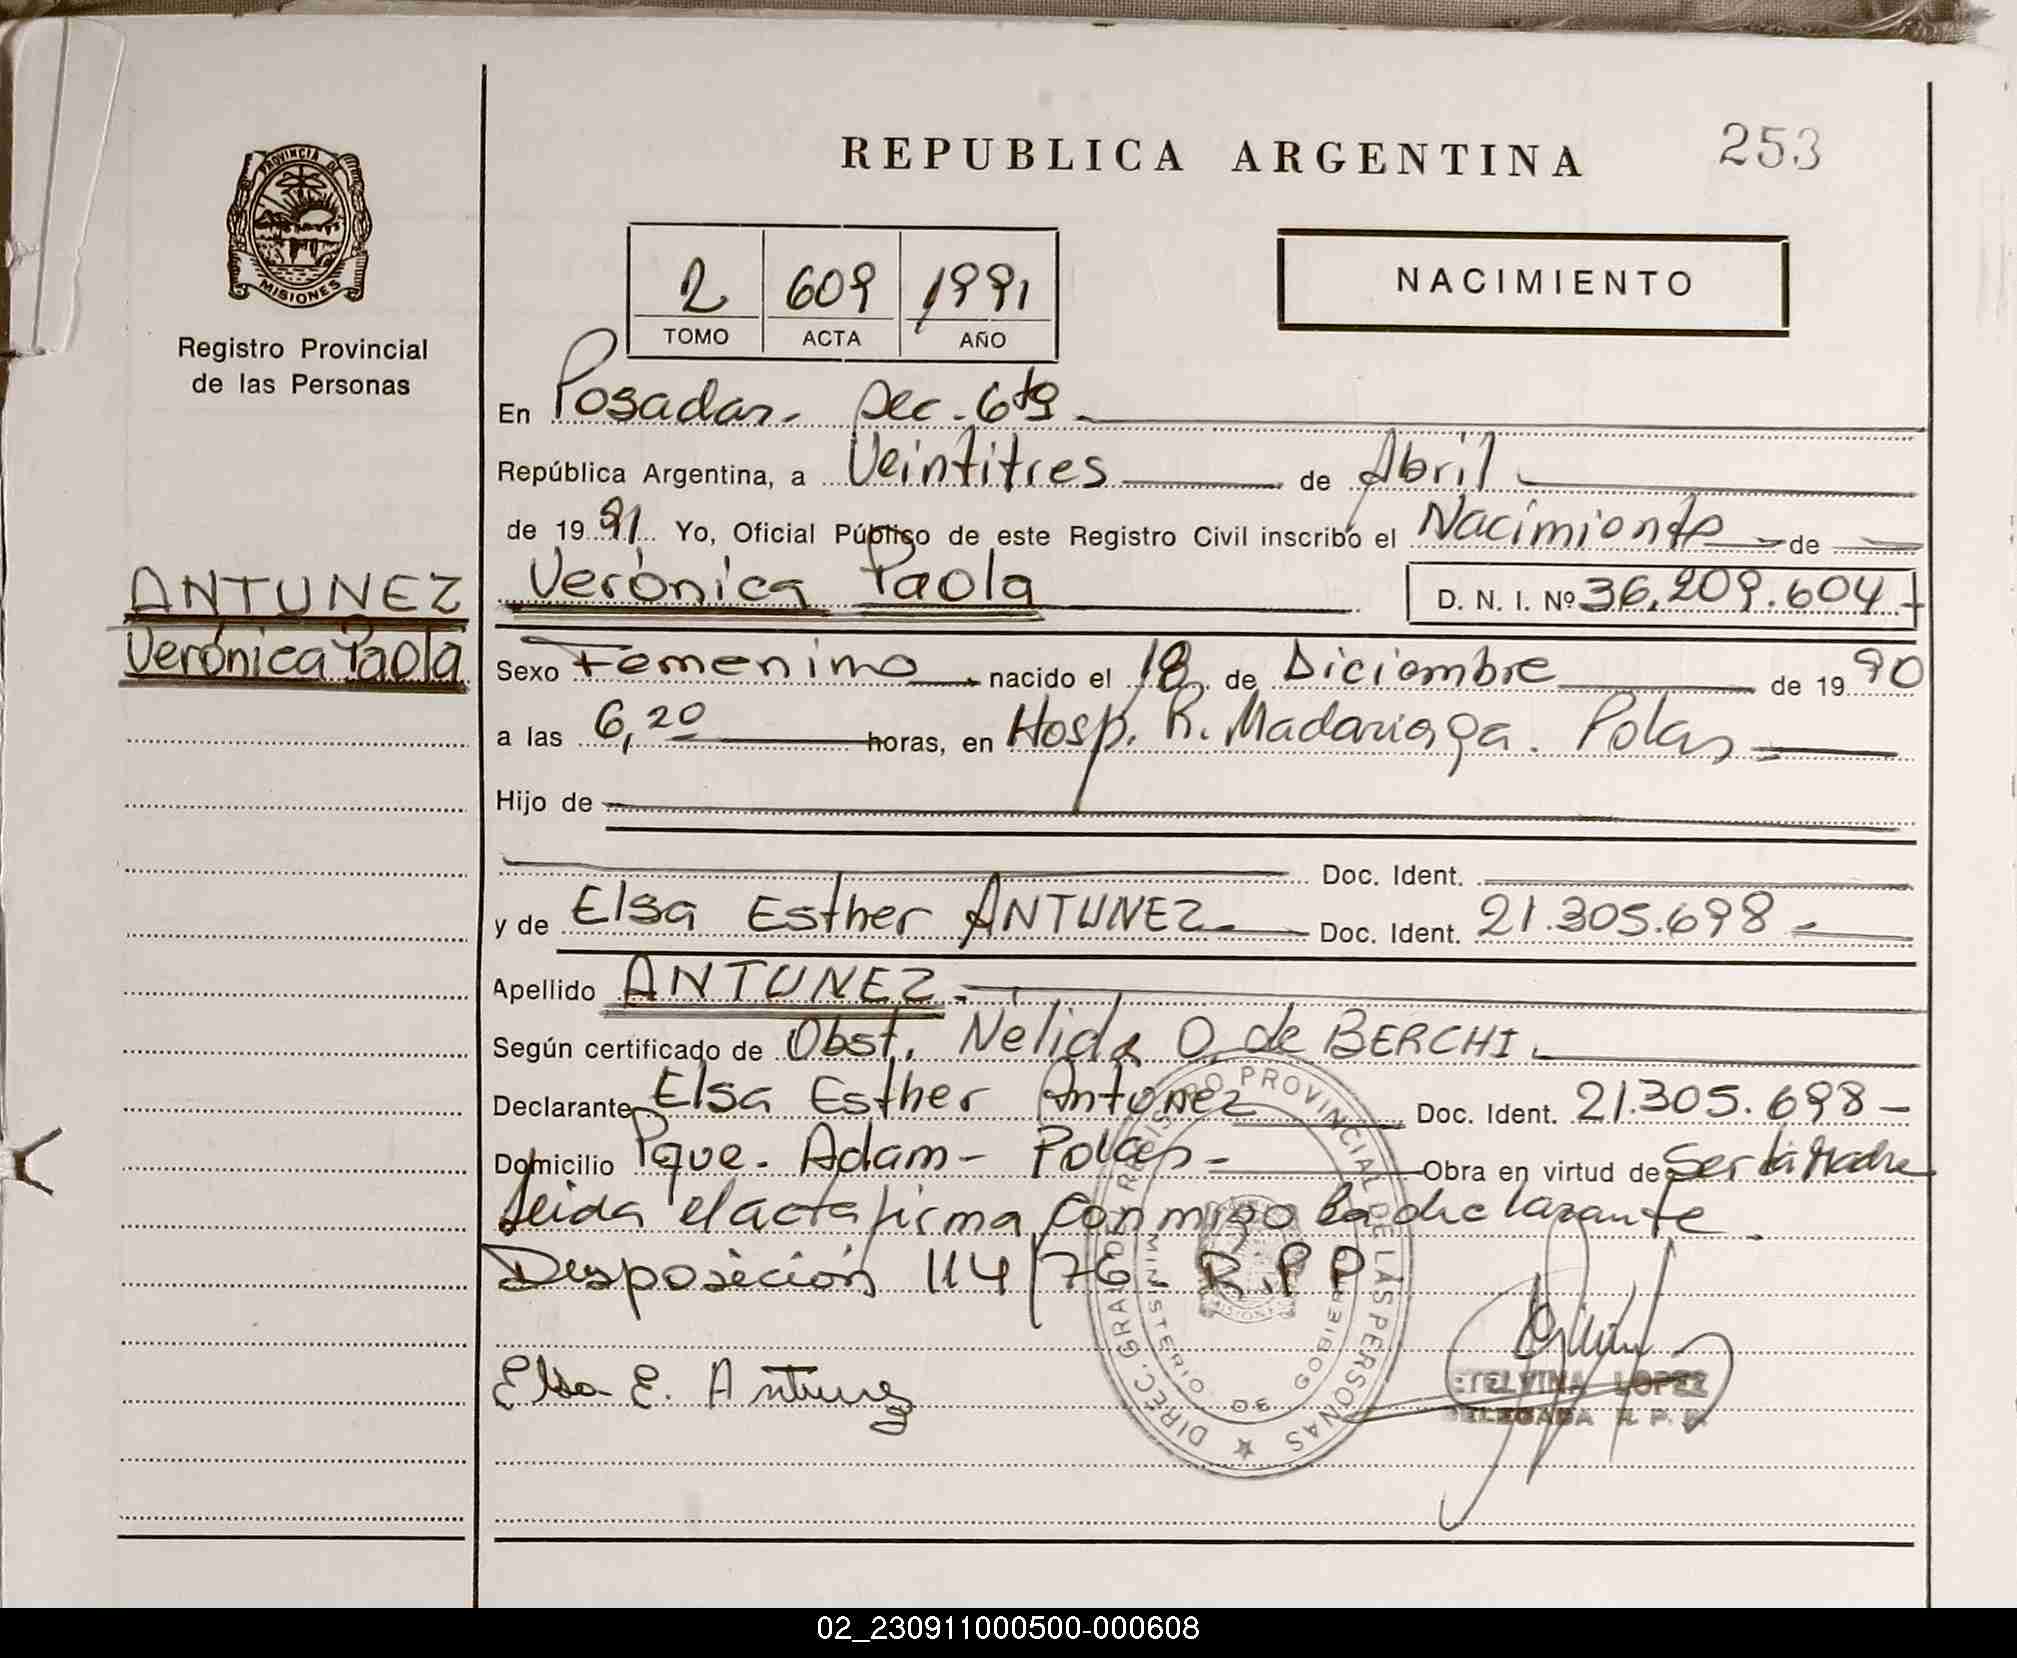 REPUBLICA ARGENTINA
253
PROVINCIA DE
MISIONES
Registro Provincial
de las Personas
2 609 1991
TOMO ACTA AÑO
NACIMIENTO
En Posadas. Sec. 6ta
República Argentina, a Veintitres de Abril
de 1991 Yo, Oficial Público de este Registro Civil inscribo el Nacimiento de
ANTUNEZ
Verónica Paola
Verónica Paola D. N. I. Nº 36.209.604
Sexo Femenino nacido el 18 de Diciembre de 1990
a las 6,20 horas, en Hosp. R. Madariaga. Pdas
Hijo de
Doc. Ident.
y de Elsa Esther ANTUNEZ Doc. Ident. 21.305.698
Apellido ANTUNEZ
Según certificado de Obst. Nélida O. de BERCHI
Declarante Elsa Esther Antunez Doc. Ident. 21.305.698
Domicilio Pque. Adam - Pdas - Obra en virtud de Ser la Madre
Leida el acta firma conmigo la declarante
Disposición 114/76 - R.P.P
Elsa E. Antunez
DIREC. GRAL. DE REGISTRO PROVINCIAL DE LAS PERSONAS
MINISTERIO DE GOBIERNO
MISIONES
ETELVINA LOPEZ
DELEGADA R. P. P.
02_230911000500-000608